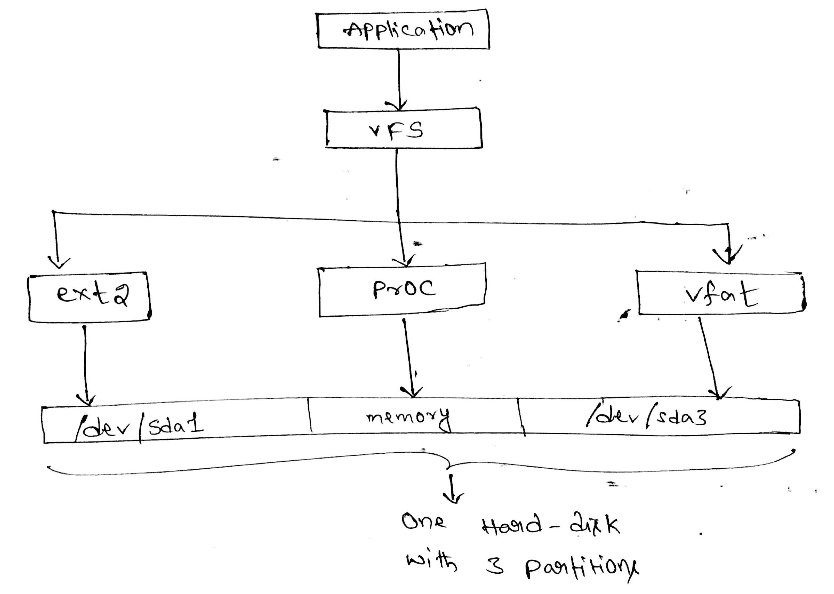 Application
VFS
ext2
Proc
vfat
/dev/sda1
memory
/dev/sda3
One Hard-disk
with 3 partitions